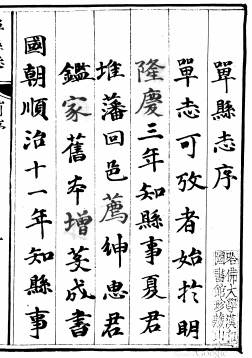 單縣志序
單志可攷者始於明
隆慶三年知縣事夏君
維藩回邑薦紳惠君
鑑家舊本增葺成書
國朝順治十一年知縣事
哈佛大學漢和
圖書館珍藏印